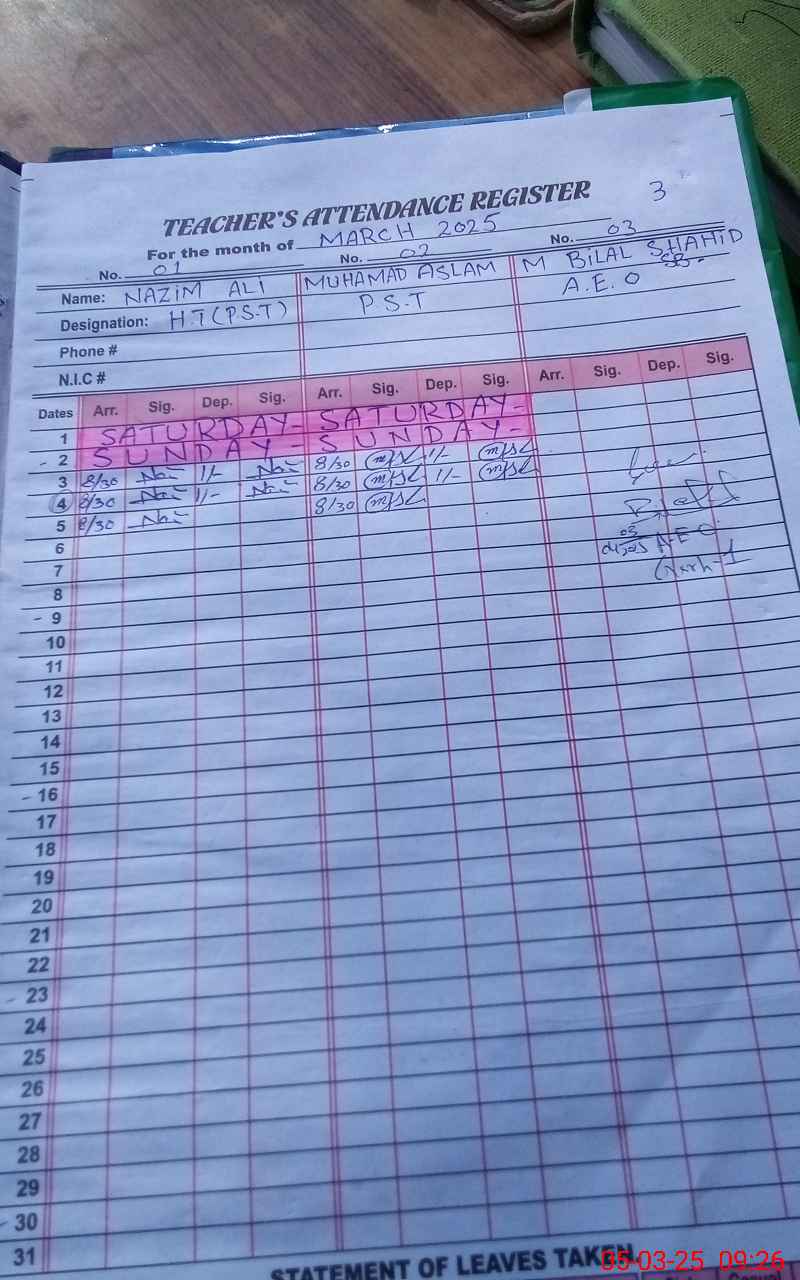 TEACHER'S ATTENDANCE REGISTER 3
For the month of MARCH 2025
No. 01 No. 02 No. 03
Name: NAZIM ALI MUHAMAD ASLAM M BILAL SHAHID SB.
Designation: H.T (P.S.T) P.S.T A.E.O
Phone #
N.I.C #
Dates Arr. Sig. Dep. Sig. Arr. Sig. Dep. Sig. Arr. Sig. Dep. Sig.
1 SATURDAY - SATURDAY -
- 2 SUNDAY - SUNDAY -
3 8/30 1/- 8/30 1/-
4 8/30 1/- 8/30 1/-
5 8/30 8/30
6 A.E.O
7
8
- 9
10
11
12
13
14
15
- 16
17
18
19
20
21
22
- 23
24
25
26
27
28
29
- 30
31
STATEMENT OF LEAVES TAKEN
05-03-25 09:26